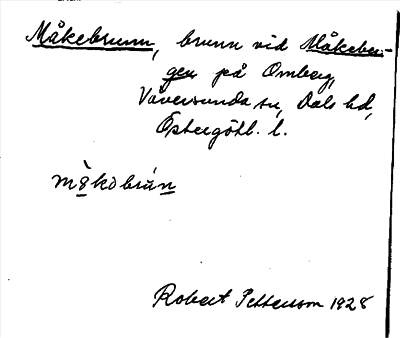 Måkebrunn, brunn vid Måkeber-
gen på Omberg,
Väversunda sn, Dals hd,
Östergötl. l.
måkɔbrún
Robert Pettersson 1928